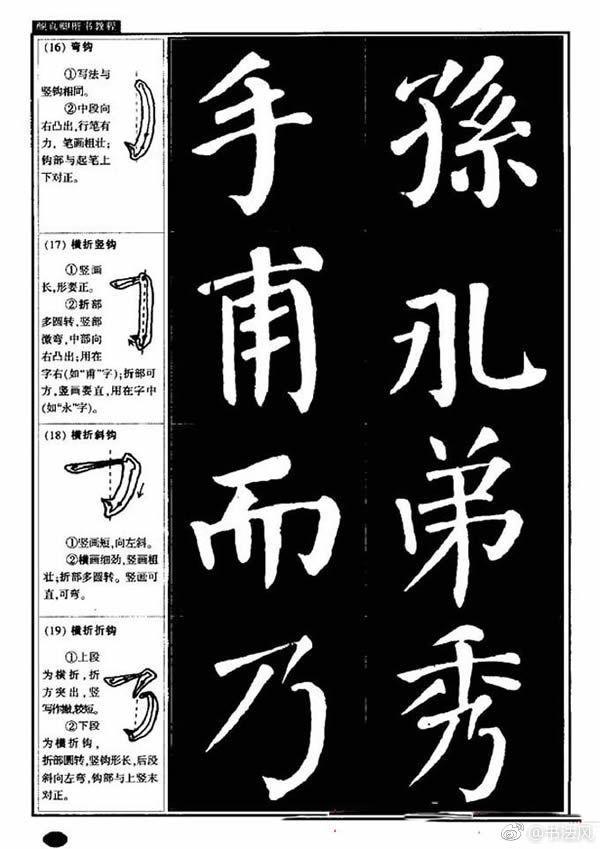 颜真卿楷书教程
(16) 弯钩
①写法与
竖钩相同。
②中段向
右凸出,行笔有
力, 笔画粗壮;
钩部与起笔上
下对正。
手 孫
(17) 横折竖钩
①竖画
长,形要正。
②折部
多圆转,竖部
微弯,中部向
右凸出;用在
字右(如“甫”字);折部可
方,竖画要直,用在字中
(如“永”字)。
甫
(18) 横折斜钩
①竖画短,向左斜。
②横画细劲,竖画粗
壮;折部多圆转。竖画可
直,可弯。
而 弟
(19) 横折折钩
①上段
为横折,折
方突出,竖
写作撇,较短。
②下段
为横折钩,
折部圆转,竖钩形长,后段
斜向左弯,钩部与上竖末
对正。
乃 秀
@书法风